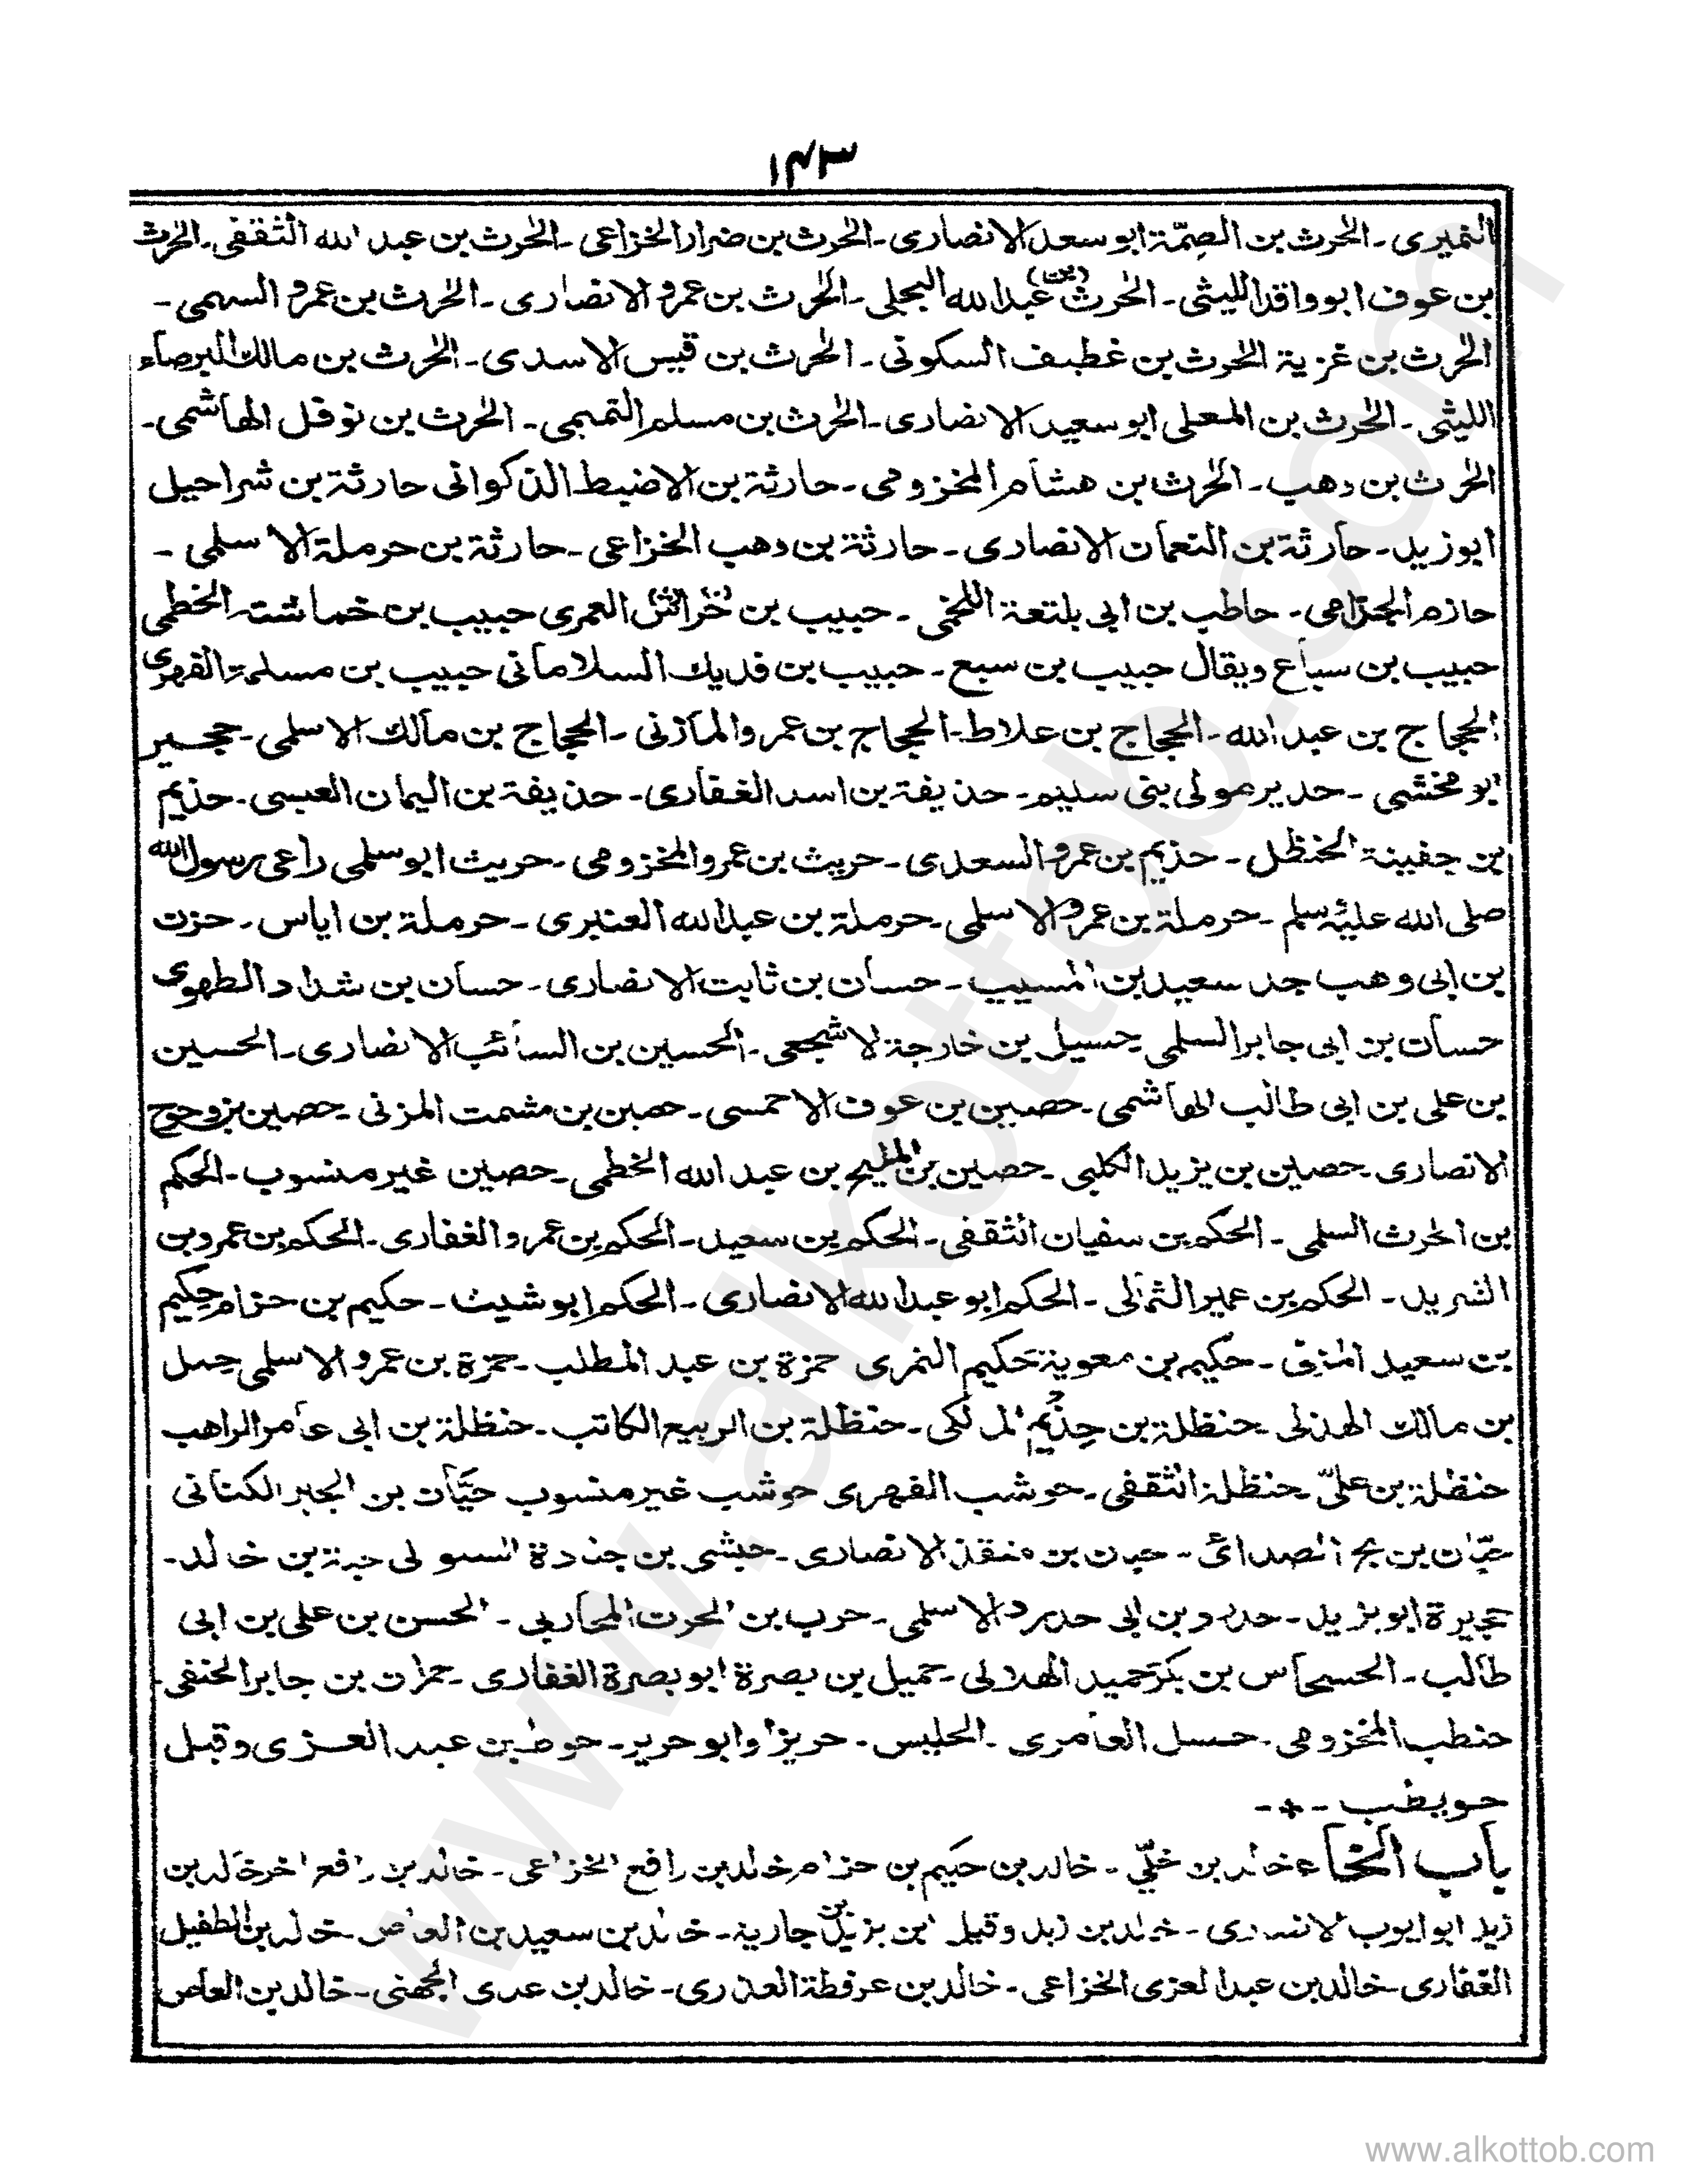 ١٤٣
النميرى - الحرث بن الصمّة ابو سعد الانصارى - الحرث بن ضرار الخزاعى - الحرث بن عبد الله الثقفى - الحرث
بن عوف ابو واقد الليثى - الحرث (بن) عبد الله البجلى - الحرث بن عمرو الانصارى - الحرث بن عمرو السهمى -
الحرث بن غزية الحرث بن غطيف السكونى - الحرث بن قيس الاسدى - الحرث بن مالك البرصاء
الليثى - الحرث بن المعلى ابو سعيد الانصارى - الحرث بن مسلم التميمى - الحرث بن نوفل الهاشمى -
الحرث بن وهب - الحرث بن هشام المخزومى - حارثة بن الاضبط الذكوانى حارثة بن شراحيل
ابو زيد - حارثة بن النعمان الانصارى - حارثة بن وهب الخزاعى - حارثة بن حرملة الاسلمى -
حازم الجذامى - حاطب بن ابى بلتعة اللخمى - حبيب بن خراش العمرى حبيب بن خماشته الخطمى
حبيب بن سباع ويقال حبيب بن سبع - حبيب بن فديك السلامانى حبيب بن مسلمة الفهرى
الحجاج بن عبد الله - الحجاج بن علاط - الحجاج بن عمرو المازنى - الحجاج بن مالك الاسلمى - حجير
ابو مخشى - حدير مولى بنى سليم - حذيفة بن اسد الغفارى - حذيفة بن اليمان العبسى - حذيم
بن حفينة الحنظل - حذيم بن عمرو السعدى - حريث بن عمرو المخزومى - حريث ابو سلمى راعى رسول الله
صلى الله عليه وسلم - حرملة بن عمرو الاسلمى - حرملة بن عبد الله العنبرى - حرملة بن اياس - حزن
بن ابى وهب جد سعيد بن المسيب - حسان بن ثابت الانصارى - حسان بن شداد الطهوى
حسان بن ابى جابر السلمى - حسيل بن خارجة الاشجعى - الحسين بن السائب الانصارى - الحسين
بن على بن ابى طالب الهاشمى - حصين بن عوف الاحمسى - حصين بن مشمت المزنى - حصين بن وحوح
الانصارى - حصين بن يزيد الكلبى - حصين بن المليح بن عبد الله الخطمى - حصين غير منسوب - الحكم
بن الحرث السلمى - الحكم بن سفيان الثقفى - الحكم بن سعيد - الحكم بن عمرو الغفارى - الحكم بن عمرو بن
الشريد - الحكم بن عمير الثمالى - الحكم ابو عبد الله الانصارى - الحكم ابو شيث - حكيم بن حزام حكيم
بن سعيد المزنى - حكيم بن معوية حكيم النمرى حمزة بن عبد المطلب - حمزة بن عمرو الاسلمى حمل
بن مالك الهذلى - حنظلة بن حذيم المالكى - حنظلة بن الربيع الكاتب - حنظلة بن ابى عامر الراهب
حنظلة بن علىّ - حنظلة الثقفى - حوشب الفهرى حوشب غير منسوب حيّان بن الجبر الكنانى
حيّان بن بح الصدائى - حيان بن منقذ الانصارى - حبشى بن جنادة السلولى حبة بن خالد -
حجيرة ابو يزيد - حدرد بن ابى حدرد الاسلمى - حرب بن الحرث المحاربى - الحسن بن على بن ابى
طالب - الحسحاس بن بكر حميد الهلالى - حميل بن بصرة ابو بصرة الغفارى - حمران بن جابر الحنفى -
حنطب المخزومى - حسل العامرى - الحليس - حريز او ابو حرير - حوط بن عبد العزى وقيل
حويطب - + -
باب الخاء خالد بن خلّى - خالد بن حكيم بن حزام خالد بن رافع الخزاعى - خالد بن رافع اخر خالد بن
زيد ابو ايوب الانصارى - خالد بن زيد وقيل ابن يزيد بن جارية - خالد بن سعيد بن العاص - خالد بن الطفيل
الغفارى - خالد بن عبد العزى الخزاعى - خالد بن عرفطة العذرى - خالد بن عدى الجهنى - خالد بن العاص
www.alkottob.com
www.alkottob.com